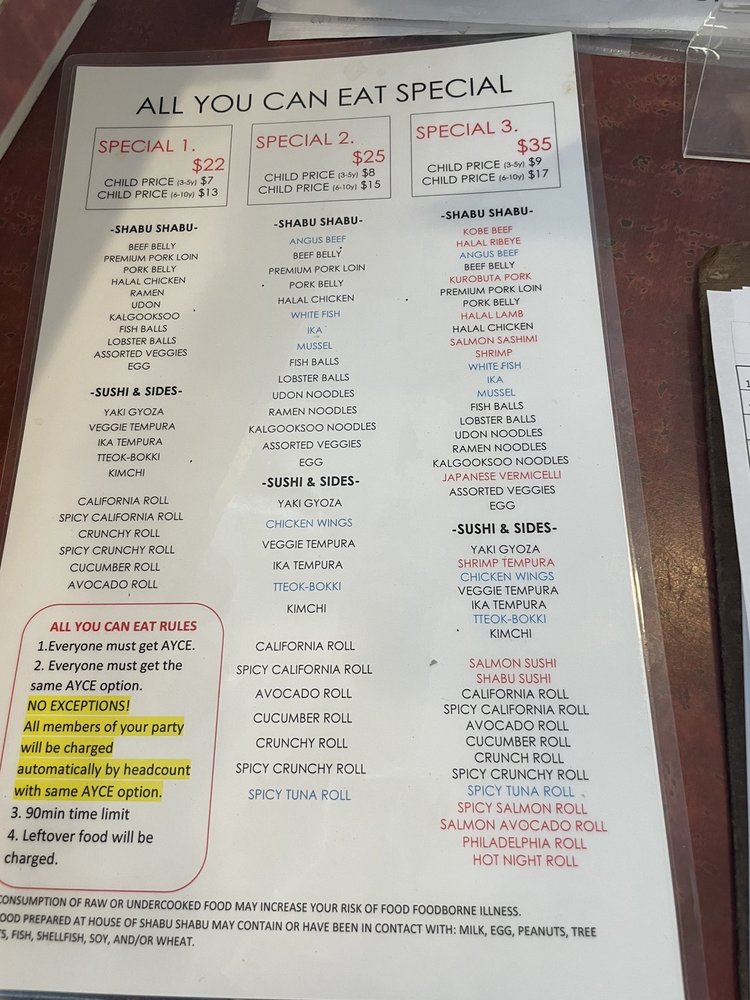 ALL YOU CAN EAT SPECIAL
SPECIAL 1.
$22
CHILD PRICE (3-5y) $7
CHILD PRICE (6-10y) $13
-SHABU SHABU-
BEEF BELLY
PREMIUM PORK LOIN
PORK BELLY
HALAL CHICKEN
RAMEN
UDON
KALGOOKSOO
FISH BALLS
LOBSTER BALLS
ASSORTED VEGGIES
EGG
-SUSHI & SIDES-
YAKI GYOZA
VEGGIE TEMPURA
IKA TEMPURA
TTEOK-BOKKI
KIMCHI
CALIFORNIA ROLL
SPICY CALIFORNIA ROLL
CRUNCHY ROLL
SPICY CRUNCHY ROLL
CUCUMBER ROLL
AVOCADO ROLL
ALL YOU CAN EAT RULES
1.Everyone must get AYCE.
2. Everyone must get the
same AYCE option.
NO EXCEPTIONS!
All members of your party
will be charged
automatically by headcount
with same AYCE option.
3. 90min time limit
4. Leftover food will be
charged.
SPECIAL 2.
$25
CHILD PRICE (3-5y) $8
CHILD PRICE (6-10y) $15
-SHABU SHABU-
ANGUS BEEF
BEEF BELLY
PREMIUM PORK LOIN
PORK BELLY
HALAL CHICKEN
WHITE FISH
IKA
MUSSEL
FISH BALLS
LOBSTER BALLS
UDON NOODLES
RAMEN NOODLES
KALGOOKSOO NOODLES
ASSORTED VEGGIES
EGG
-SUSHI & SIDES-
YAKI GYOZA
CHICKEN WINGS
VEGGIE TEMPURA
IKA TEMPURA
TTEOK-BOKKI
KIMCHI
CALIFORNIA ROLL
SPICY CALIFORNIA ROLL
AVOCADO ROLL
CUCUMBER ROLL
CRUNCHY ROLL
SPICY CRUNCHY ROLL
SPICY TUNA ROLL
SPECIAL 3.
$35
CHILD PRICE (3-5y) $9
CHILD PRICE (6-10y) $17
-SHABU SHABU-
KOBE BEEF
HALAL RIBEYE
ANGUS BEEF
BEEF BELLY
KUROBUTA PORK
PREMIUM PORK LOIN
PORK BELLY
HALAL LAMB
HALAL CHICKEN
SALMON SASHIMI
SHRIMP
WHITE FISH
IKA
MUSSEL
FISH BALLS
LOBSTER BALLS
UDON NOODLES
RAMEN NOODLES
KALGOOKSOO NOODLES
JAPANESE VERMICELLI
ASSORTED VEGGIES
EGG
-SUSHI & SIDES-
YAKI GYOZA
SHRIMP TEMPURA
CHICKEN WINGS
VEGGIE TEMPURA
IKA TEMPURA
TTEOK-BOKKI
KIMCHI
SALMON SUSHI
SHABU SUSHI
CALIFORNIA ROLL
SPICY CALIFORNIA ROLL
AVOCADO ROLL
CUCUMBER ROLL
CRUNCH ROLL
SPICY CRUNCHY ROLL
SPICY TUNA ROLL
SPICY SALMON ROLL
SALMON AVOCADO ROLL
PHILADELPHIA ROLL
HOT NIGHT ROLL
CONSUMPTION OF RAW OR UNDERCOOKED FOOD MAY INCREASE YOUR RISK OF FOOD FOODBORNE ILLNESS.
OOD PREPARED AT HOUSE OF SHABU SHABU MAY CONTAIN OR HAVE BEEN IN CONTACT WITH: MILK, EGG, PEANUTS, TREE
TS, FISH, SHELLFISH, SOY, AND/OR WHEAT.